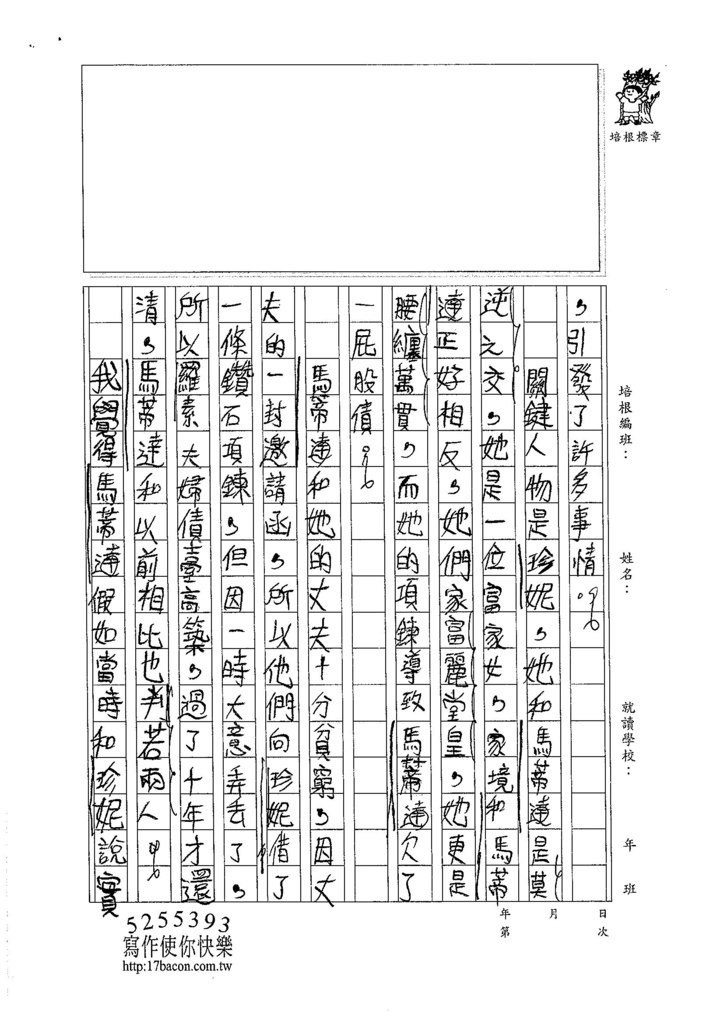 培根標章
培根編班：
姓名：
就讀學校：
年
班
，引發了許多事情。
關鍵人物是珍妮，她和馬蒂達是莫
逆之交，她是一位富家女，家境和馬蒂
達正好相反，她們家富麗堂皇，她更是
腰纏萬貫，而她的項鍊導致馬蒂達欠了
一屁股債。
馬蒂達和她的丈夫十分貧窮，因丈
夫的一封邀請函，所以他們向珍妮借了
一條鑽石項鍊，但因一時大意弄丟了，
所以羅素夫婦債臺高築，過了十年才還
清，馬蒂達和以前相比也判若兩人。
我覺得馬蒂達假如當時和珍妮說實
年
月
日
第
次
5255393
寫作使你快樂
http:17bacon.com.tw